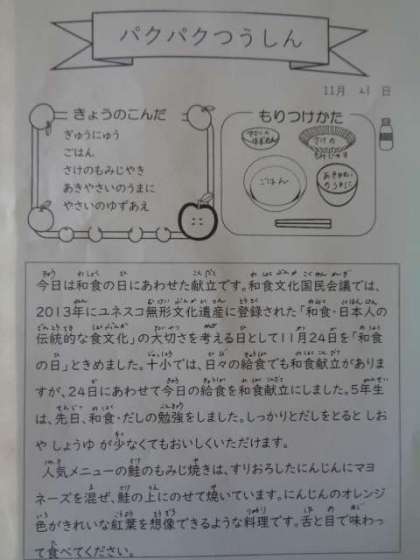 パクパクつうしん
11月 21 日
きょうのこんだて
ぎゅうにゅう
ごはん
さけのもみじやき
あきやさいのうまに
やさいのゆずあえ
もりつけかた
やさいの
ゆずあえ
さけの
もみじやき
ごはん
あきやさい
のうまに
今日は和食の日にあわせた献立です。和食文化国民会議では、
2013年にユネスコ無形文化遺産に登録された「和食・日本人の
伝統的な食文化」の大切さを考える日として11月24日を「和食
の日」ときめました。十小では、日々の給食でも和食献立がありま
すが、24日にあわせて今日の給食を和食献立にしました。5年生
は、先日、和食・だしの勉強をしました。しっかりとだしをとると しお
や しょうゆ が少なくてもおいしくいただけます。
人気メニューの鮭のもみじ焼きは、すりおろしたにんじんにマヨ
ネーズを混ぜ、鮭の上にのせて焼いています。にんじんのオレンジ
色がきれいな紅葉を想像できるような料理です。舌と目で味わっ
て食べてください。